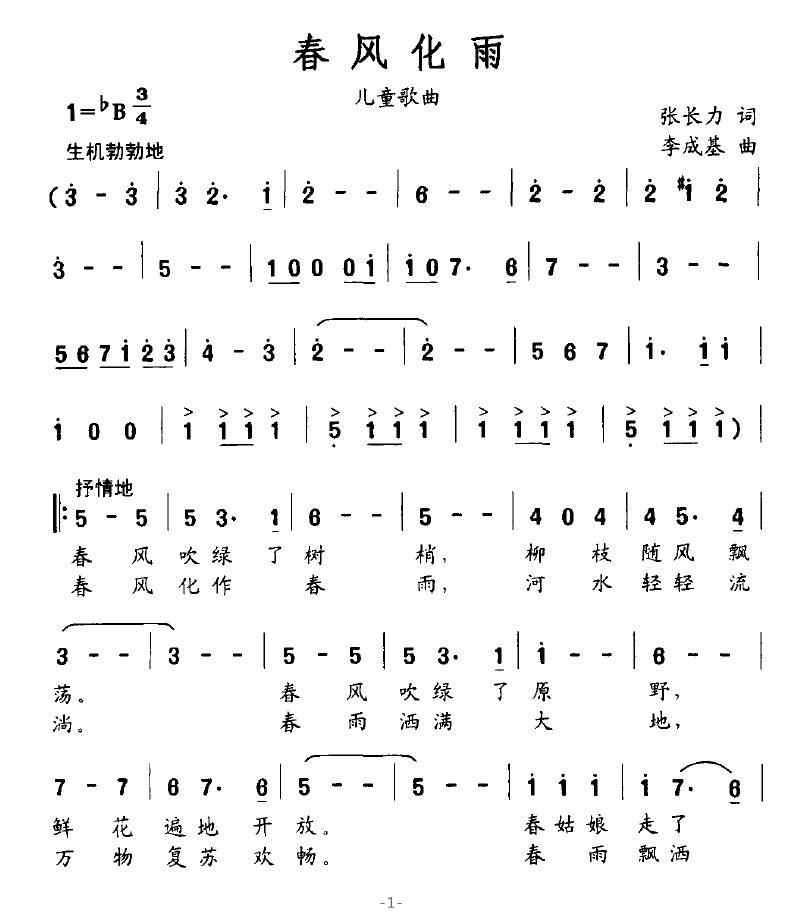 春风化雨
儿童歌曲
1=♭B 3/4
张长力 词
生机勃勃地
李成基 曲
(3̇ - 3̇ | 3̇ 2̇· 1̇ | 2̇ - - | 6 - - | 2̇ - 2̇ | 2̇ #1̇ 2̇ |
3̇ - - | 5 - - | 1 0 0 0 0 1̇ | 1̇ 0 7· 6 | 7 - - | 3 - - |
5 6 7 1̇ 2̇ 3̇ | 4̇ - 3̇ | 2̇ - - | 2̇ - - | 5 6 7 | 1̇· 1̇ 1̇ |
1̇ 0 0 | 1 1 1 1 | 5̣ 1 1 1 | 1 1 1 1 | 5̣ 1 1 1 ) |
抒情地
‖: 5 - 5 | 5 3· 1 | 6 - - | 5 - - | 4 0 4 | 4 5· 4 |
春 风 吹 绿 了 树 梢, 柳 枝 随 风 飘
春 风 化 作 春 雨, 河 水 轻 轻 流
3 - - | 3 - - | 5 - 5 | 5 3· 1 | 1̇ - - | 6 - - |
荡。 春 风 吹 绿 了 原 野,
淌。 春 雨 洒 满 大 地,
7 - 7 | 6 7· 6 | 5 - - | 5 - - | 1̇ 1̇ 1̇ | 1̇ 7· 6 |
鲜 花 遍 地 开 放。 春 姑 娘 走 了
万 物 复 苏 欢 畅。 春 雨 飘 洒
-1-